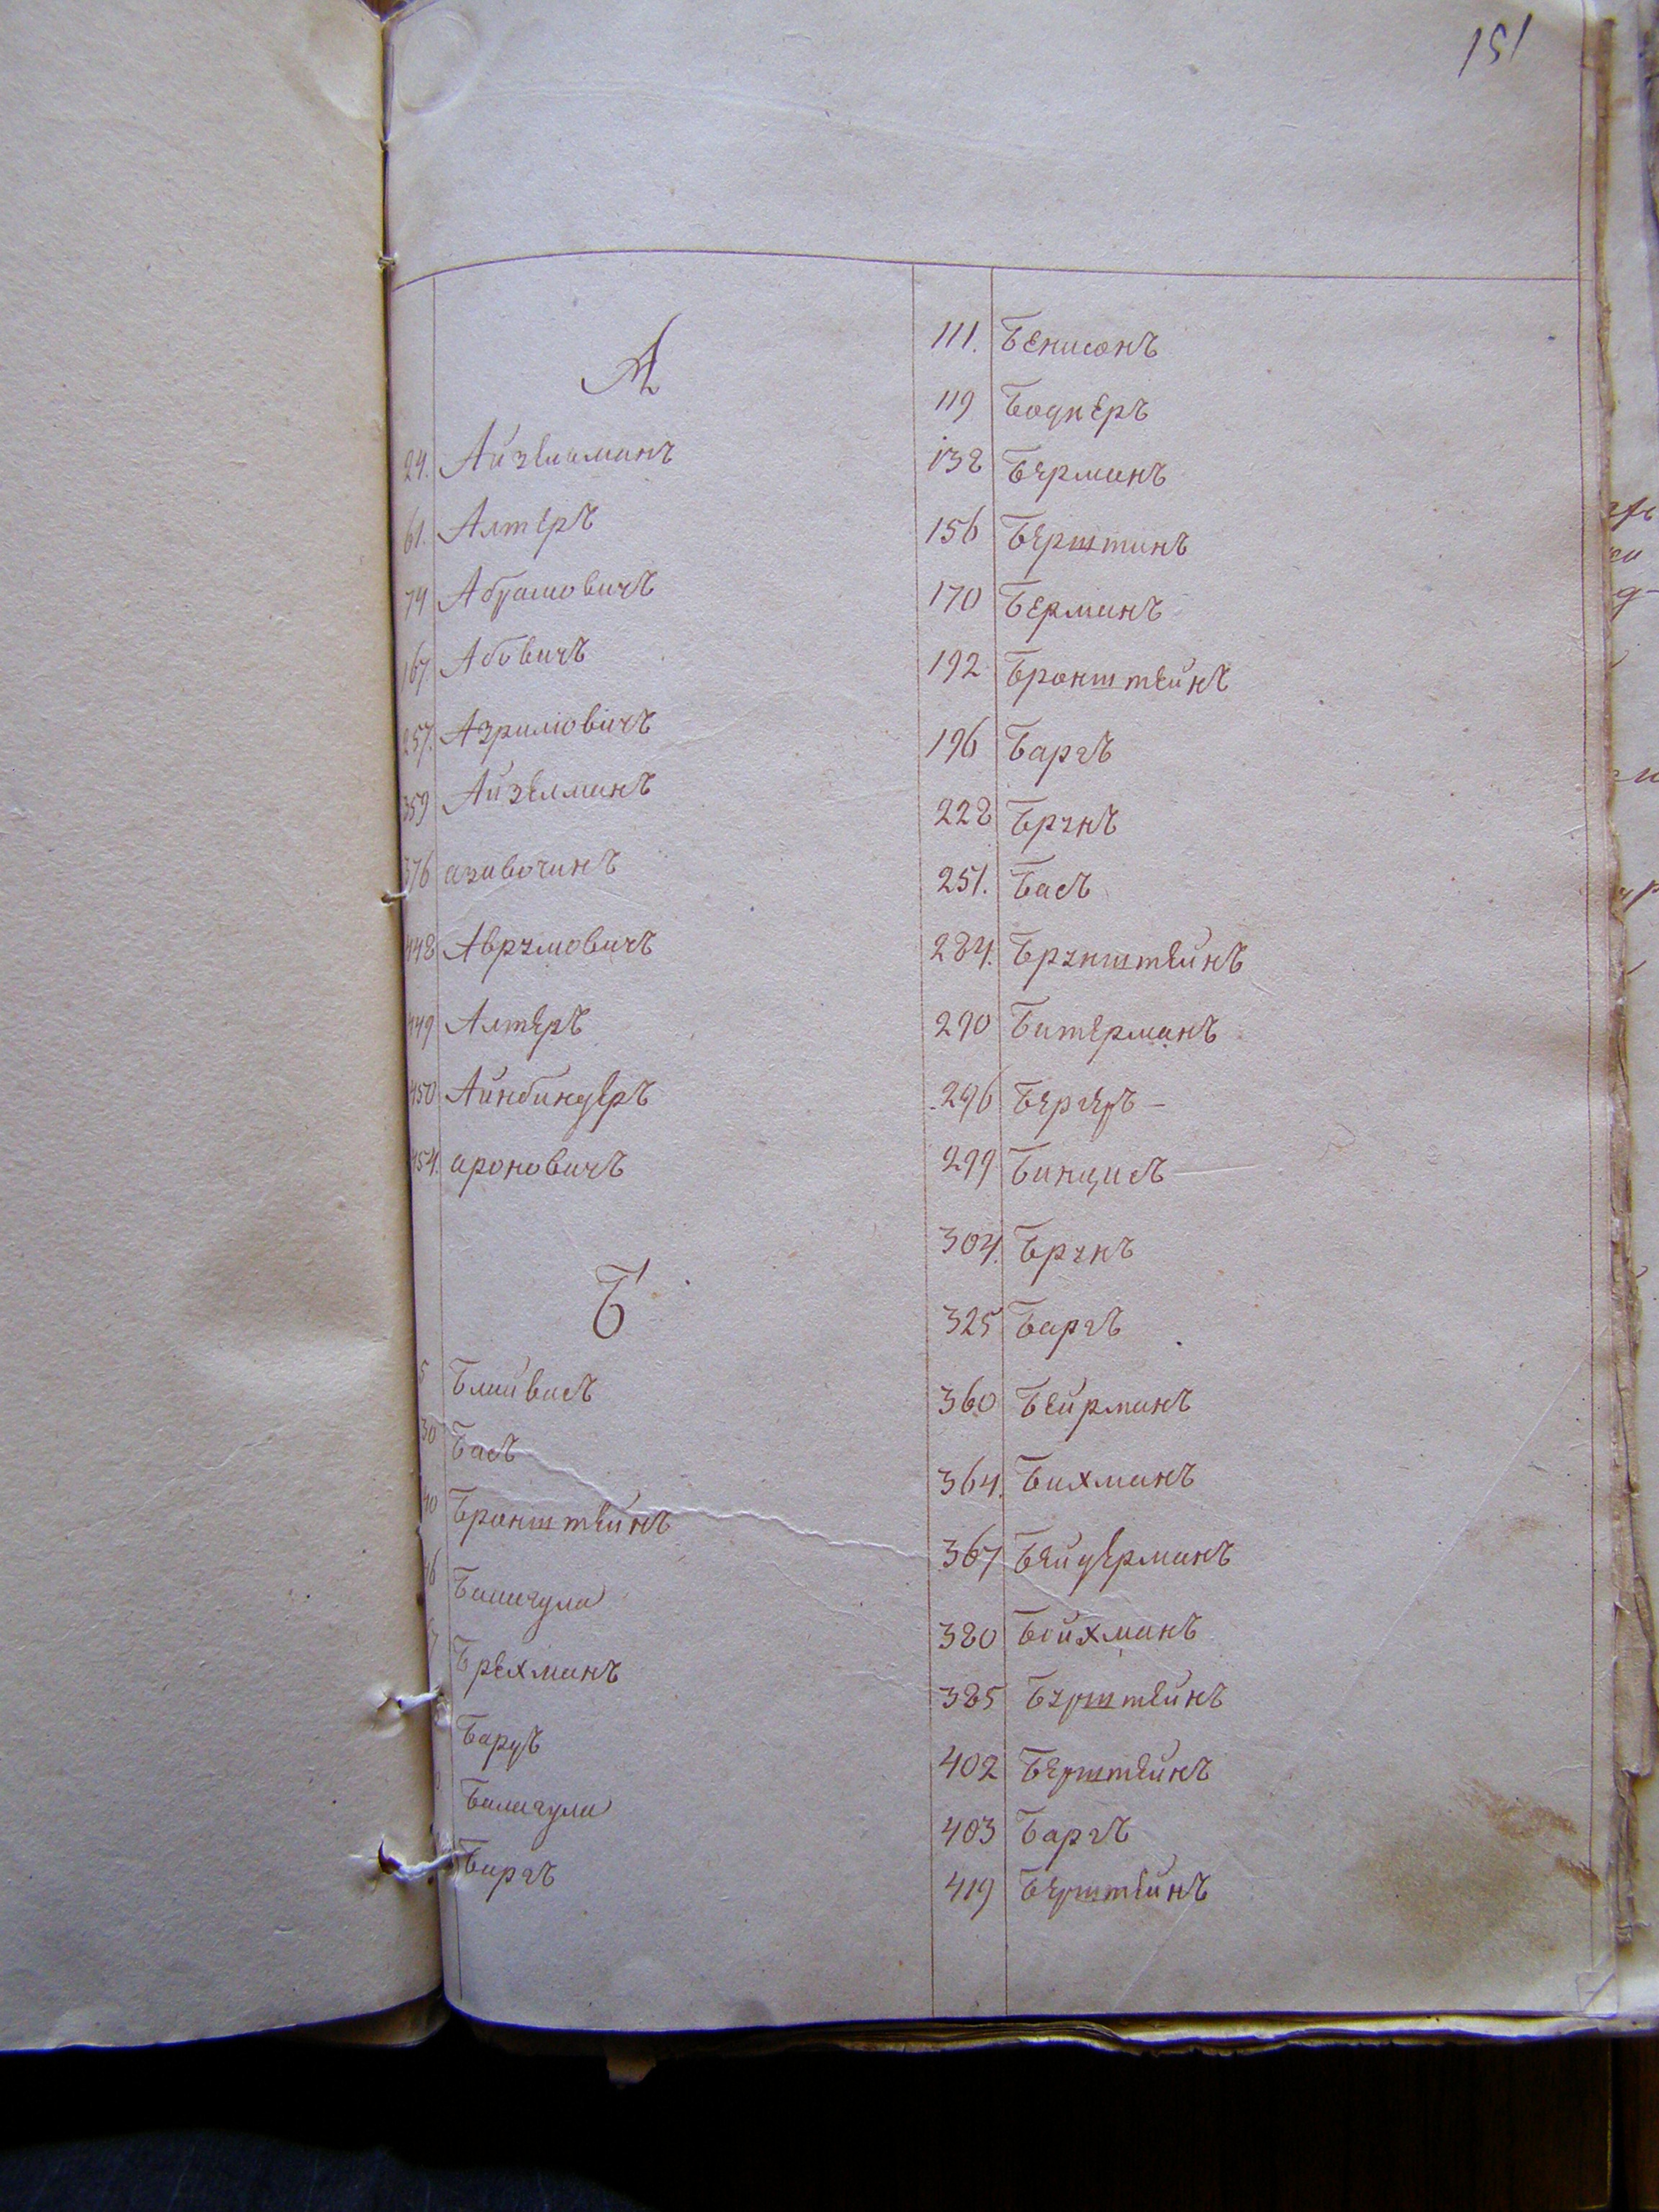 151
А
24. Айзелиманъ
61. Алтеръ
74 Абрамовичъ
167. Абовичъ
257. Азриліовичъ
359 Айзелманъ
376 азавочинъ
448 Аврумовичъ
449 Алтеръ
450 Айнбиндеръ
454. ароновичъ
Б
5 Блайвасъ
30 Басъ
40 Бронштейнъ
46 Балигула
Брехманъ
Бардъ
Балигула
Баргъ
111. Бенисонъ
119 Боднеръ
138 Берманъ
156 Берштинъ
170 Берманъ
192 Бронштейнъ
196 Баргъ
228 Брунъ
251. Басъ
284. Брунштейнъ
290 Битерманъ
296 Бергеръ –
299 Бинцисъ
304. Брунъ
325 Баргъ
360 Бейрманъ
364. Бихманъ
367 Бейдерманъ
380 Бойхманъ
385 Бурштейнъ
402 Берштейнъ
403 Баргъ
419 Берштейнъ